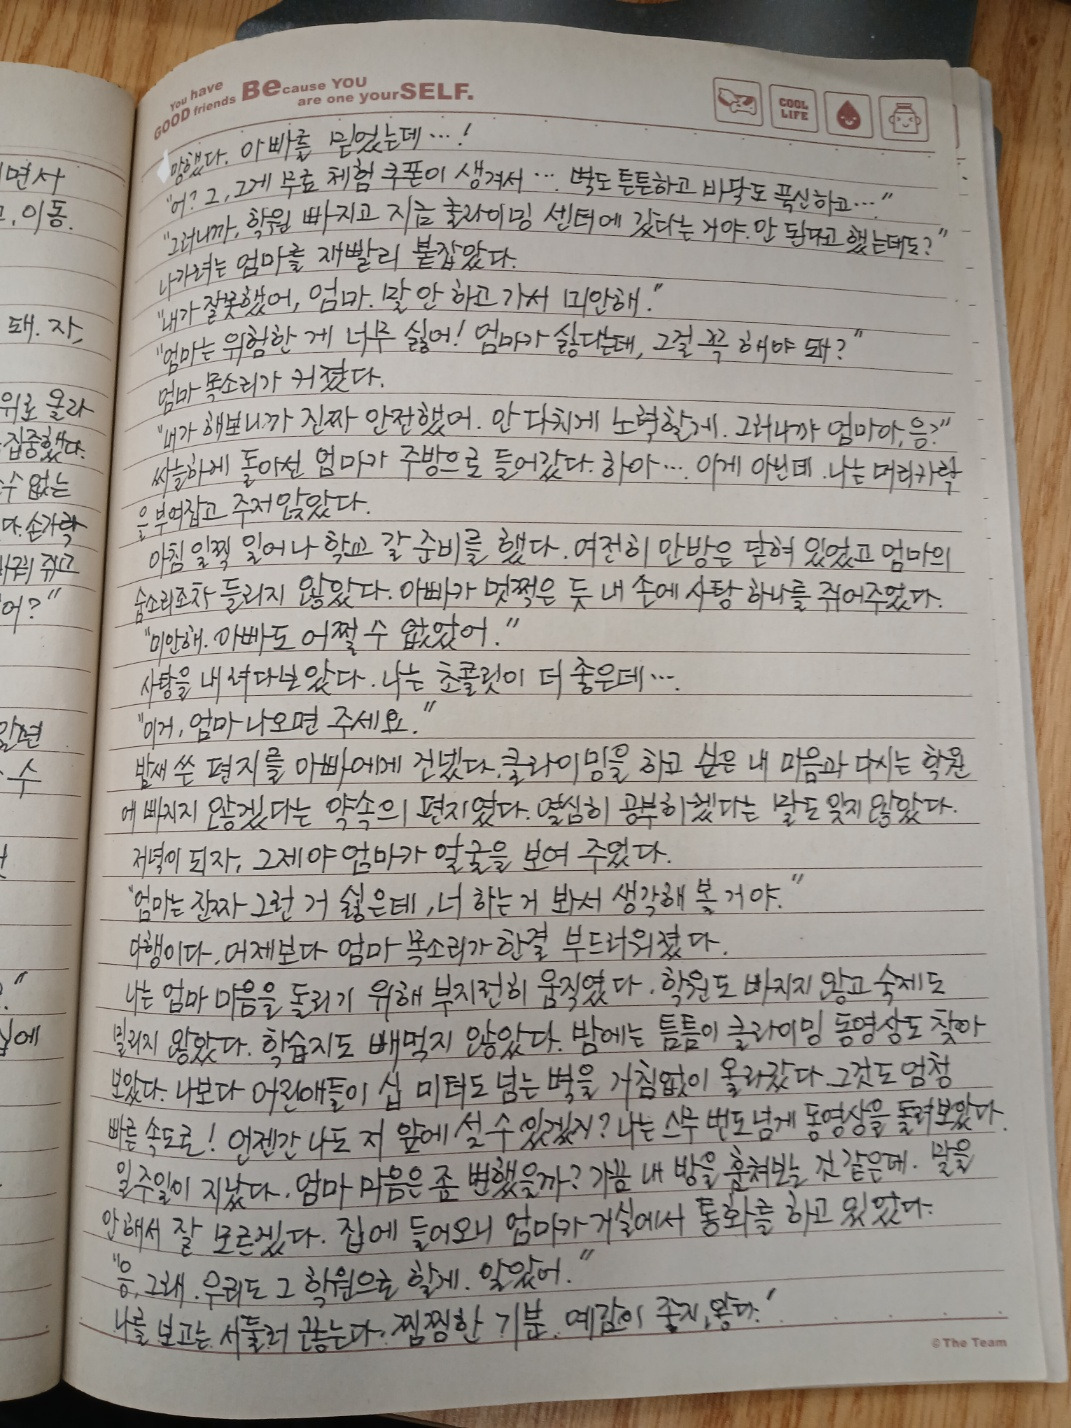 You have
GOOD friends BEcause YOU
are one yourSELF.
COOL
LIFE
망했다. 아빠를 믿었는데…!
"어? 그, 그게 무료 체험 쿠폰이 생겨서 …. 벽도 튼튼하고 바닥도 푹신하고…"
"그러니까, 학원 빠지고 지금 클라이밍 센터에 갔다는 거야. 안 된다고 했는데도?"
나가려는 엄마를 재빨리 붙잡았다.
"내가 잘못했어, 엄마. 말 안 하고 가서 미안해."
"엄마는 위험한 게 너무 싫어! 엄마가 싫다는데, 그걸 꼭 해야 돼?"
엄마 목소리가 커졌다.
"내가 해보니까 진짜 안전했어. 안 다치게 노력할게. 그러니까 엄마아, 응?"
싸늘하게 돌아선 엄마가 주방으로 들어갔다. 하아… 이게 아닌데. 나는 머리카락
을 부여잡고 주저앉았다.
아침 일찍 일어나 학교 갈 준비를 했다. 여전히 안방은 닫혀 있었고 엄마의
숨소리조차 들리지 않았다. 아빠가 멋쩍은 듯 내 손에 사탕 하나를 쥐어주었다.
"미안해. 아빠도 어쩔 수 없었어."
사탕을 내려다보았다. 나는 초콜릿이 더 좋은데….
"이거, 엄마 나오면 주세요."
밤새 쓴 편지를 아빠에게 건넸다. 클라이밍을 하고 싶은 내 마음과 다시는 학원
에 빠지지 않겠다는 약속의 편지였다. 열심히 공부하겠다는 말도 잊지 않았다.
저녁이 되자, 그제야 엄마가 얼굴을 보여 주었다.
"엄마는 진짜 그런 거 싫은데, 너 하는 거 봐서 생각해 볼 거야."
다행이다. 어제보다 엄마 목소리가 한결 부드러워졌다.
나는 엄마 마음을 돌리기 위해 부지런히 움직였다. 학원도 빠지지 않고 숙제도
밀리지 않았다. 학습지도 빼먹지 않았다. 밤에는 틈틈이 클라이밍 동영상도 찾아
보았다. 나보다 어린애들이 십 미터도 넘는 벽을 거침없이 올라갔다. 그것도 엄청
빠른 속도로! 언젠간 나도 저 앞에 설 수 있겠지? 나는 스무 번도 넘게 동영상을 돌려보았다.
일주일이 지났다. 엄마 마음은 좀 변했을까? 가끔 내 방을 훔쳐보는 것 같은데. 말을
안 해서 잘 모르겠다. 집에 들어오니 엄마가 거실에서 통화를 하고 있었다.
"응, 그래. 우리도 그 학원으로 할게. 알았어."
나를 보고는 서둘러 끊는다. 찜찜한 기분. 예감이 좋지 않다.
©The Team